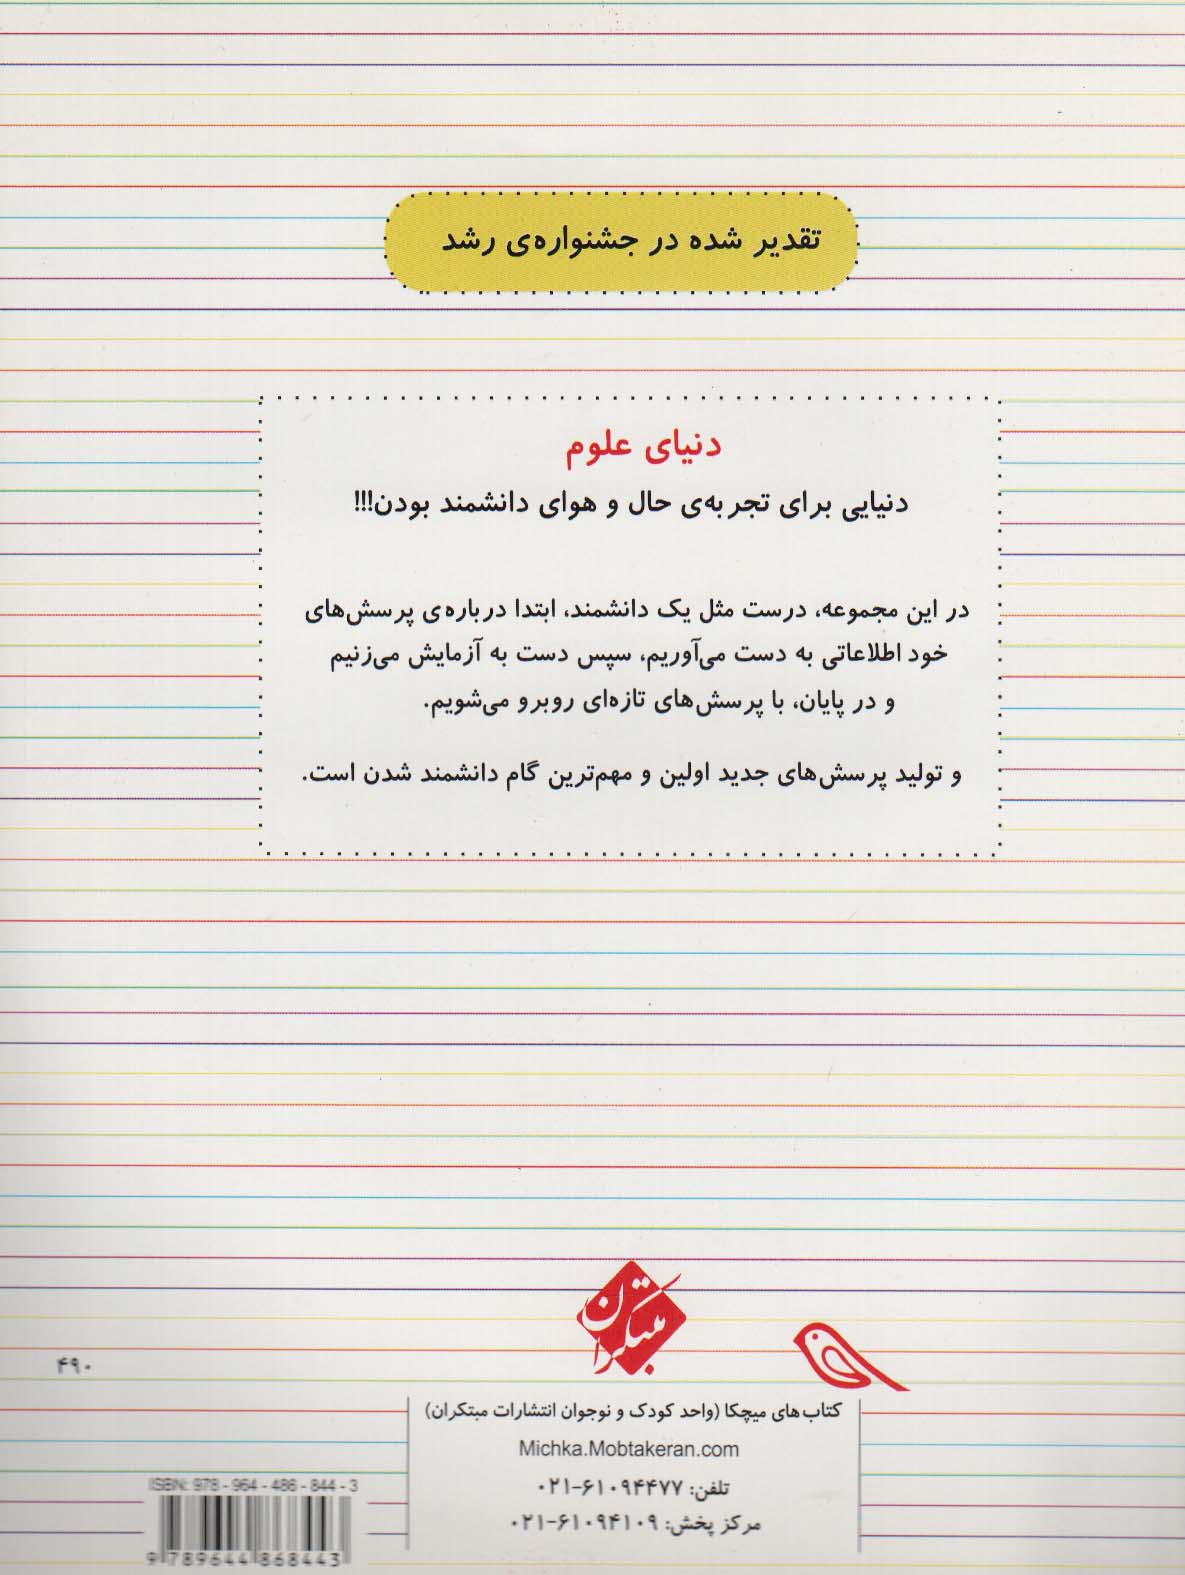 تقدیر شده در جشنواره‌ی رشد
دنیای علوم
دنیایی برای تجربه‌ی حال و هوای دانشمند بودن!!!
در این مجموعه، درست مثل یک دانشمند، ابتدا درباره‌ی پرسش‌های
خود اطلاعاتی به دست می‌آوریم، سپس دست به آزمایش می‌زنیم
و در پایان، با پرسش‌های تازه‌ای روبرو می‌شویم.
و تولید پرسش‌های جدید اولین و مهم‌ترین گام دانشمند شدن است.
مبتکران
۴۹۰
کتاب‌های میچکا (واحد کودک و نوجوان انتشارات مبتکران)
Michka.Mobtakeran.com
تلفن: ۶۱۰۹۴۴۷۷-۰۲۱
مرکز پخش: ۶۱۰۹۴۱۰۹-۰۲۱
ISBN: 978 - 964 - 486 - 844 - 3
9 789644 868443